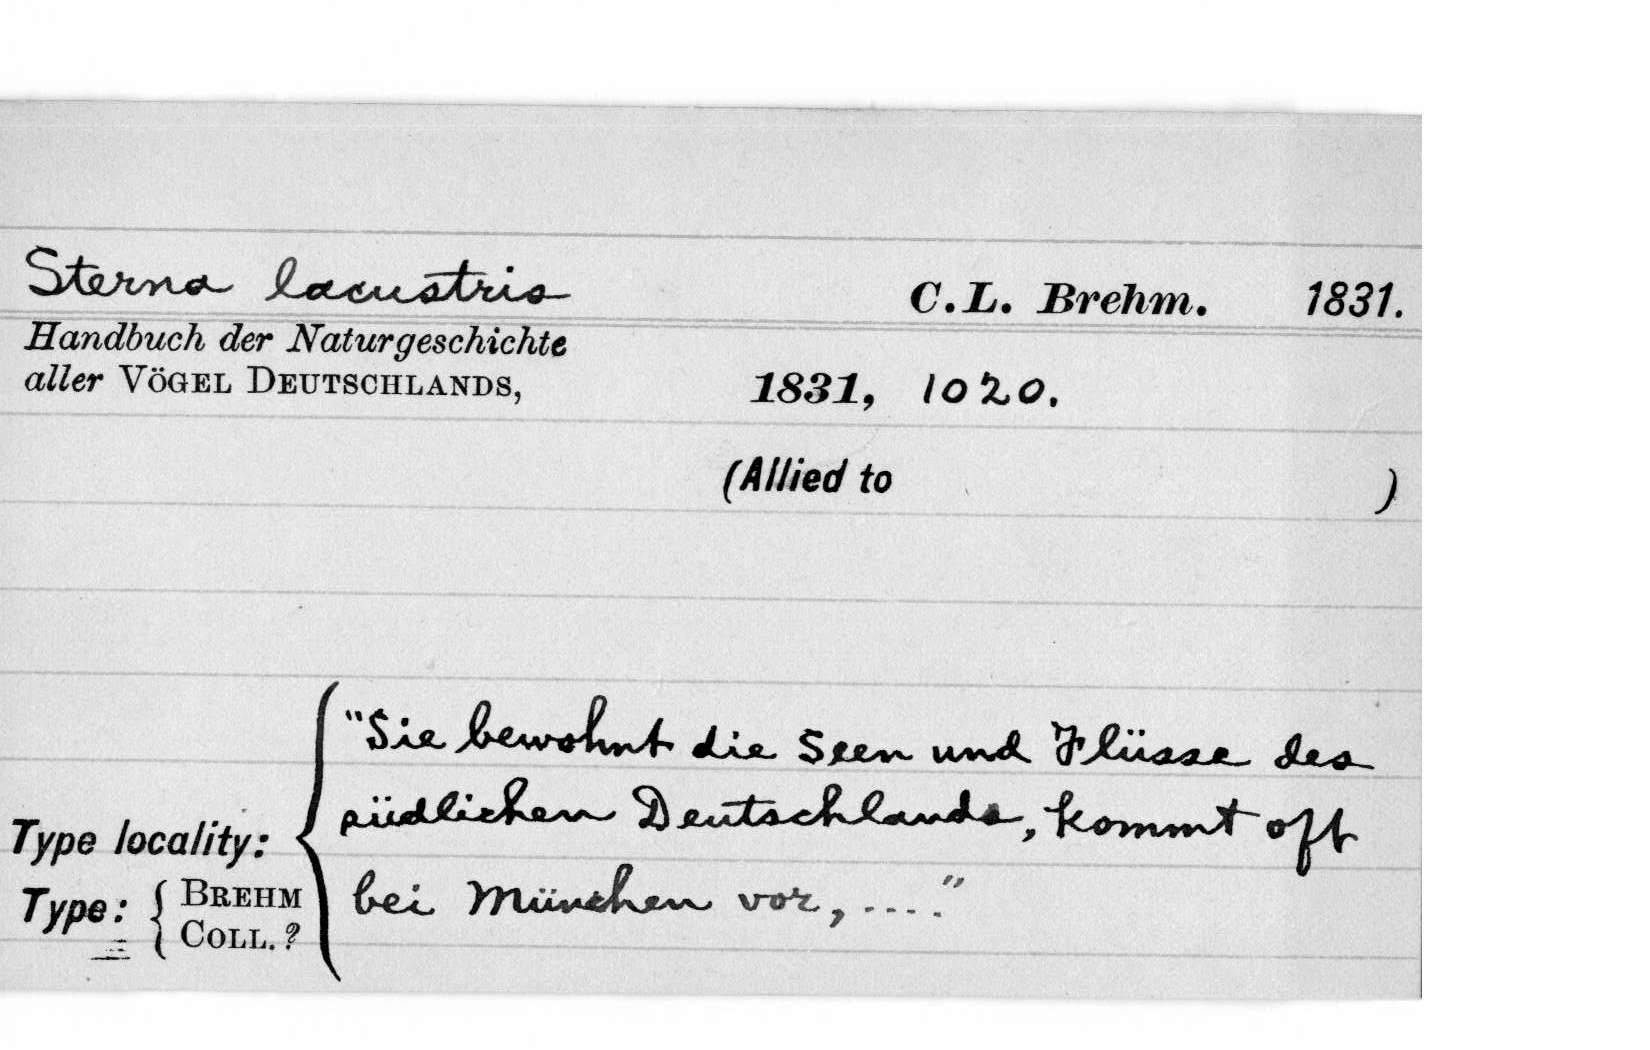 Sterna lacustris C.L. Brehm. 1831.
Handbuch der Naturgeschichte
aller VÖGEL DEUTSCHLANDS, 1831, 1020.
(Allied to )
"Sie bewohnt die Seen und Flüsse des
südlichen Deutschlands, kommt oft
Type locality:
bei München vor, ...."
Type: { BREHM
COLL. ?